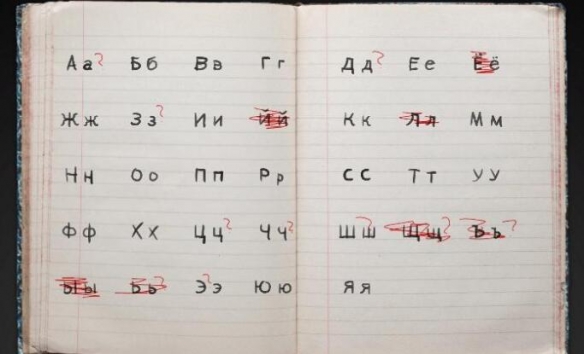 Аа? Бб Вв Гг Дд? Ее Ёё
Жж Зз? Ии Йй Кк Лл Мм
Нн Оо Пп Рр Сс Тт Уу
Фф Хх Цц? Чч? Шш? Щщ? Ъъ?
Ыы Ьь? Ээ? Юю Яя